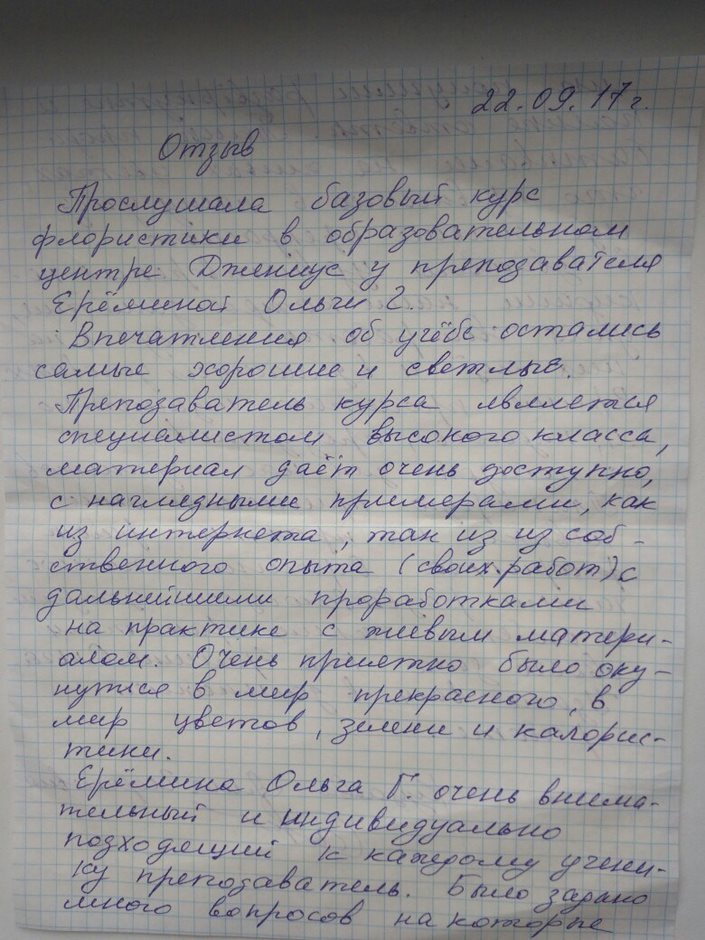 22.09.17г.
Отзыв
Прослушала базовый курс
флористики в образовательном
центре Джениус у преподавателя
Ерёминой Ольги Г.
Впечатления об учёбе остались
самые хорошие и светлые.
Преподаватель курса является
специалистом высокого класса,
материал даёт очень доступно,
с наглядными примерами, как
из интернета, так из из соб-
ственного опыта (своих работ) с
дальнейшими проработками
на практике с живым матери-
алом. Очень приятно было оку-
нутся в мир прекрасного, в
мир цветов, зелени и калорис-
тики.
Ерёмина Ольга Г. очень внима-
тельный и индивидуально
подходящий к каждому учени-
ку преподаватель. Было задано
много вопросов на которые